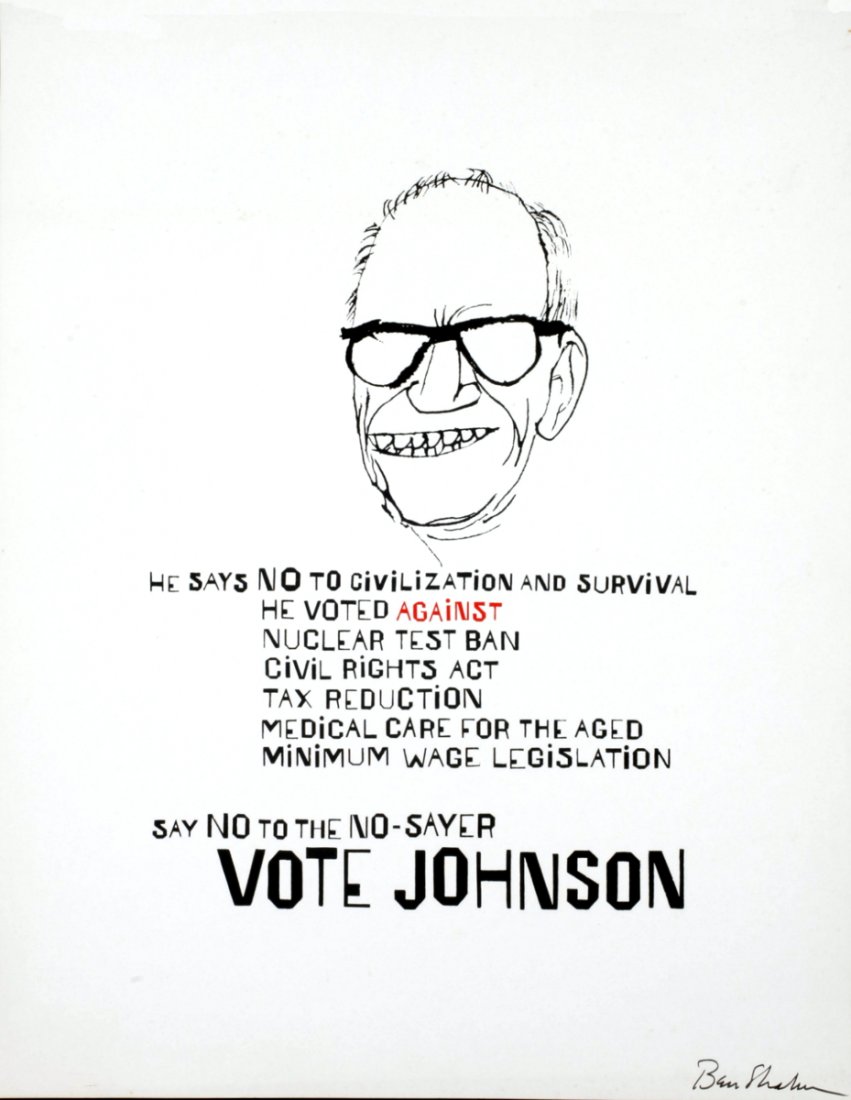 HE SAYS NO TO CiViLiZATiON AND SURViVAL
HE VOTED AGAiNST
NUCLEAR TEST BAN
CiViL RiGHTS ACT
TAX REDUCTiON
MEDiCAL CARE FOR THE AGED
MiNiMUM WAGE LEGiSLATiON
SAY NO TO THE NO-SAYER
VOTE JOHNSON
Ben Shahn